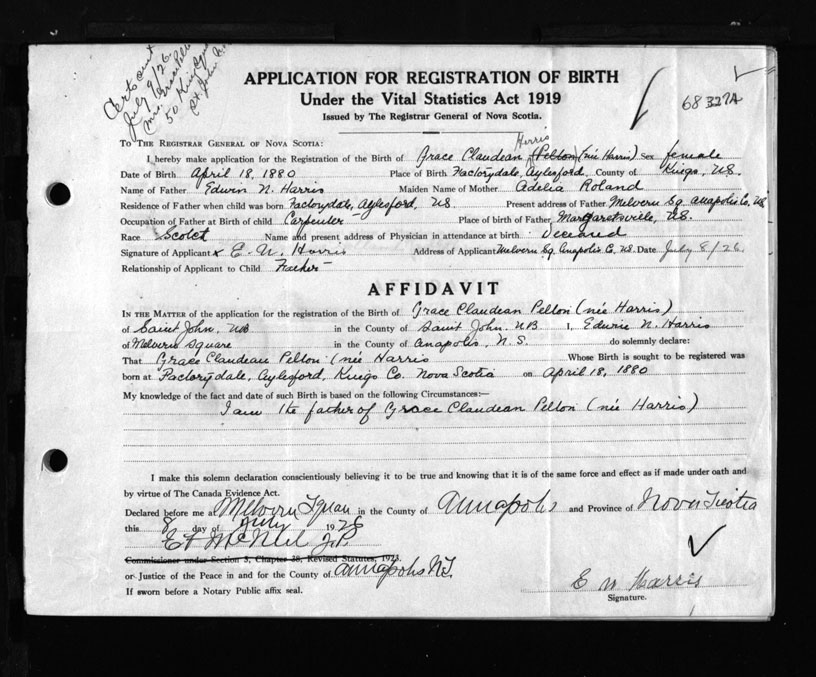 Cert sent
July 9/26
Mrs. Grace Pelton
50 King
St. John N.
APPLICATION FOR REGISTRATION OF BIRTH
Under the Vital Statistics Act 1919
Issued by The Registrar General of Nova Scotia.
68 327A
TO THE REGISTRAR GENERAL OF NOVA SCOTIA:
Harris
I hereby make application for the Registration of the Birth of Grace Claudean (Pelton) (née Harris) Sex female
Date of Birth April 18, 1880 Place of Birth Factorydale, Aylesford, County of Kings, N.S.
Name of Father Edwin N. Harris Maiden Name of Mother Adelia Roland
Residence of Father when child was born Factorydale, Aylesford, N.S. Present address of Father Melvern Sq. Anapolis Co. N.S.
Occupation of Father at Birth of child Carpenter Place of birth of Father Margaretsville, N.S.
Race Scotch Name and present address of Physician in attendance at birth Deceased
Signature of Applicant x E. N. Harris Address of Applicant Melvern Sq. Anapolis C. N.S. Date July 8/26
Relationship of Applicant to Child Father
AFFIDAVIT
IN THE MATTER of the application for the registration of the Birth of Grace Claudean Pelton (née Harris)
of Saint John, NB in the County of Saint John. NB I, Edwin N. Harris
of Melvern Square in the County of Anapolis, N.S. do solemnly declare:
That Grace Claudean Pelton (née Harris Whose Birth is sought to be registered was
born at Factorydale, Aylesford, Kings Co. Nova Scotia on April 18, 1880
My knowledge of the fact and date of such Birth is based on the following Circumstances:—
I am the father of Grace Claudean Pelton (née Harris)
I make this solemn declaration conscientiously believing it to be true and knowing that it is of the same force and effect as if made under oath and
by virtue of The Canada Evidence Act.
Declared before me at Melvern Square in the County of Annapolis and Province of Nova Scotia
this 8 day of July 1926
McNeil J.P.
Commissioner under Section 5, Chapter 38, Revised Statutes, 1923.
or Justice of the Peace in and for the County of Annapolis N.S.
If sworn before a Notary Public affix seal.
E N Harris
Signature.